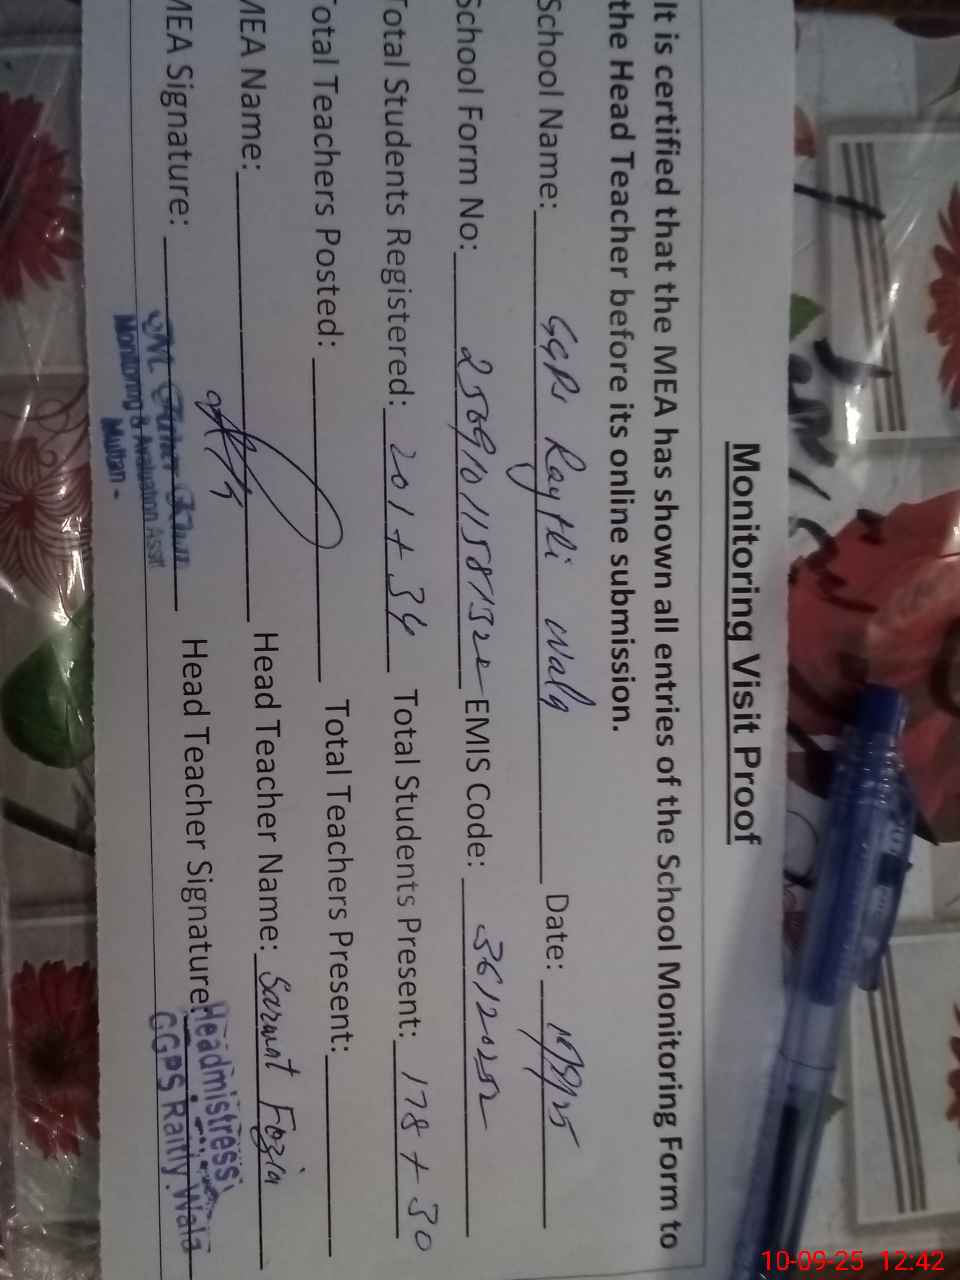 Monitoring Visit Proof
It is certified that the MEA has shown all entries of the School Monitoring Form to
the Head Teacher before its online submission.
School Name: GGPS Raythi wala Date:
School Form No: EMIS Code:
Total Students Registered: 201 + 34 Total Students Present: 178 + 30
Total Teachers Posted: Total Teachers Present:
MEA Name: Head Teacher Name: Sarwat Fozia
MEA Signature: Head Teacher Signature:
Monitoring & Evaluation Asstt
Multan -
Headmistress
GGPS Raitly Wala
10-09-25 12:42